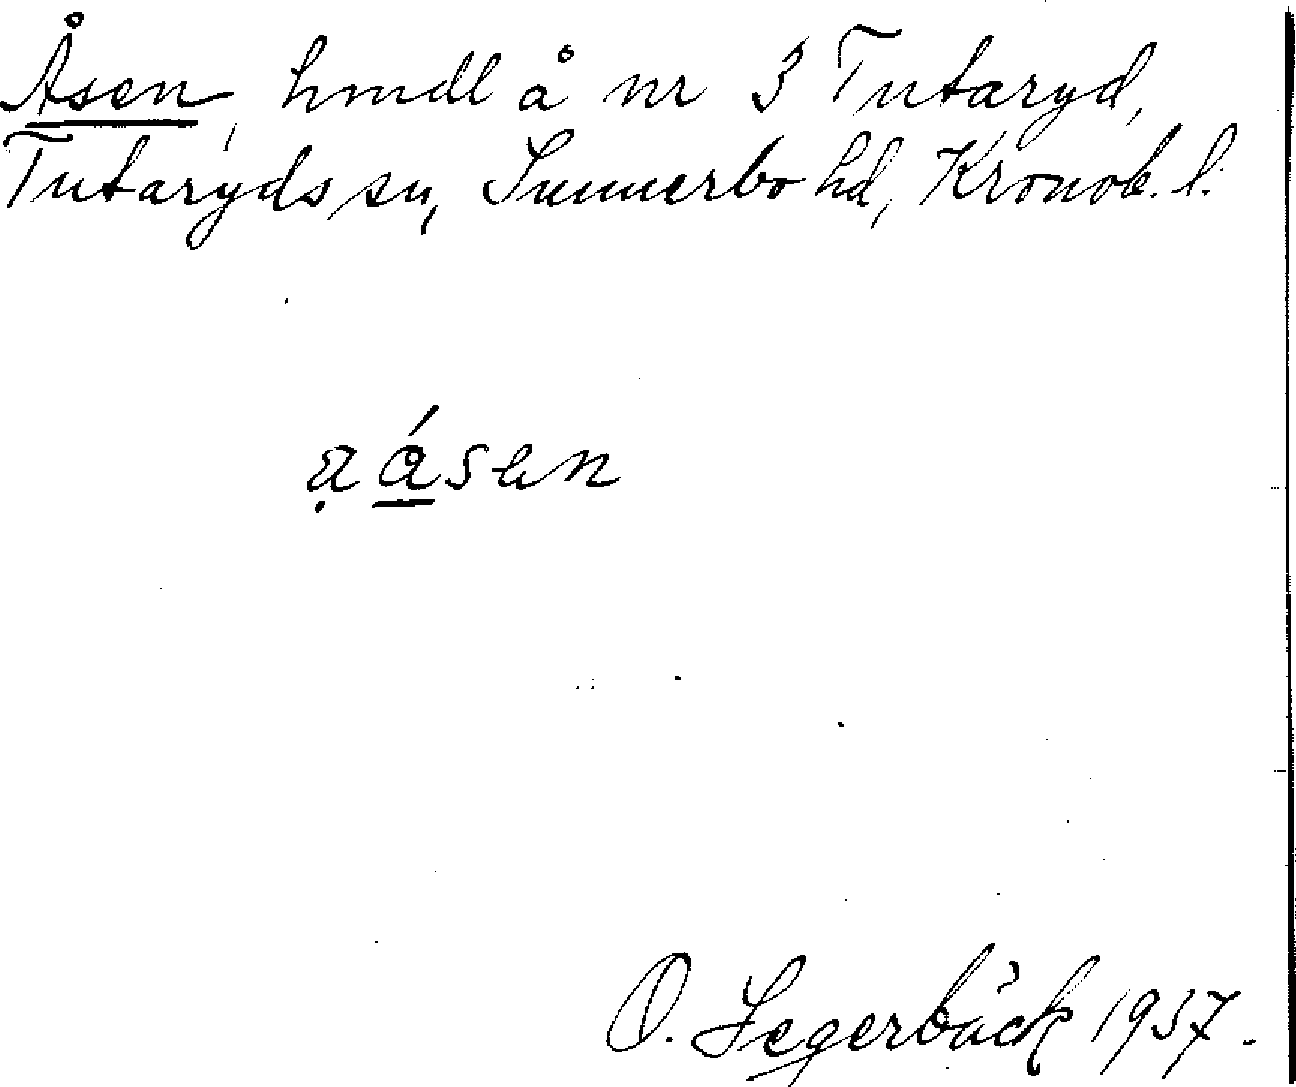 Åsen, hmdl å nr 3 Tutaryd,
Tutaryds sn, Sunnerbo hd, Kronob. l.
ạásen
O. Segerbäck 1937.